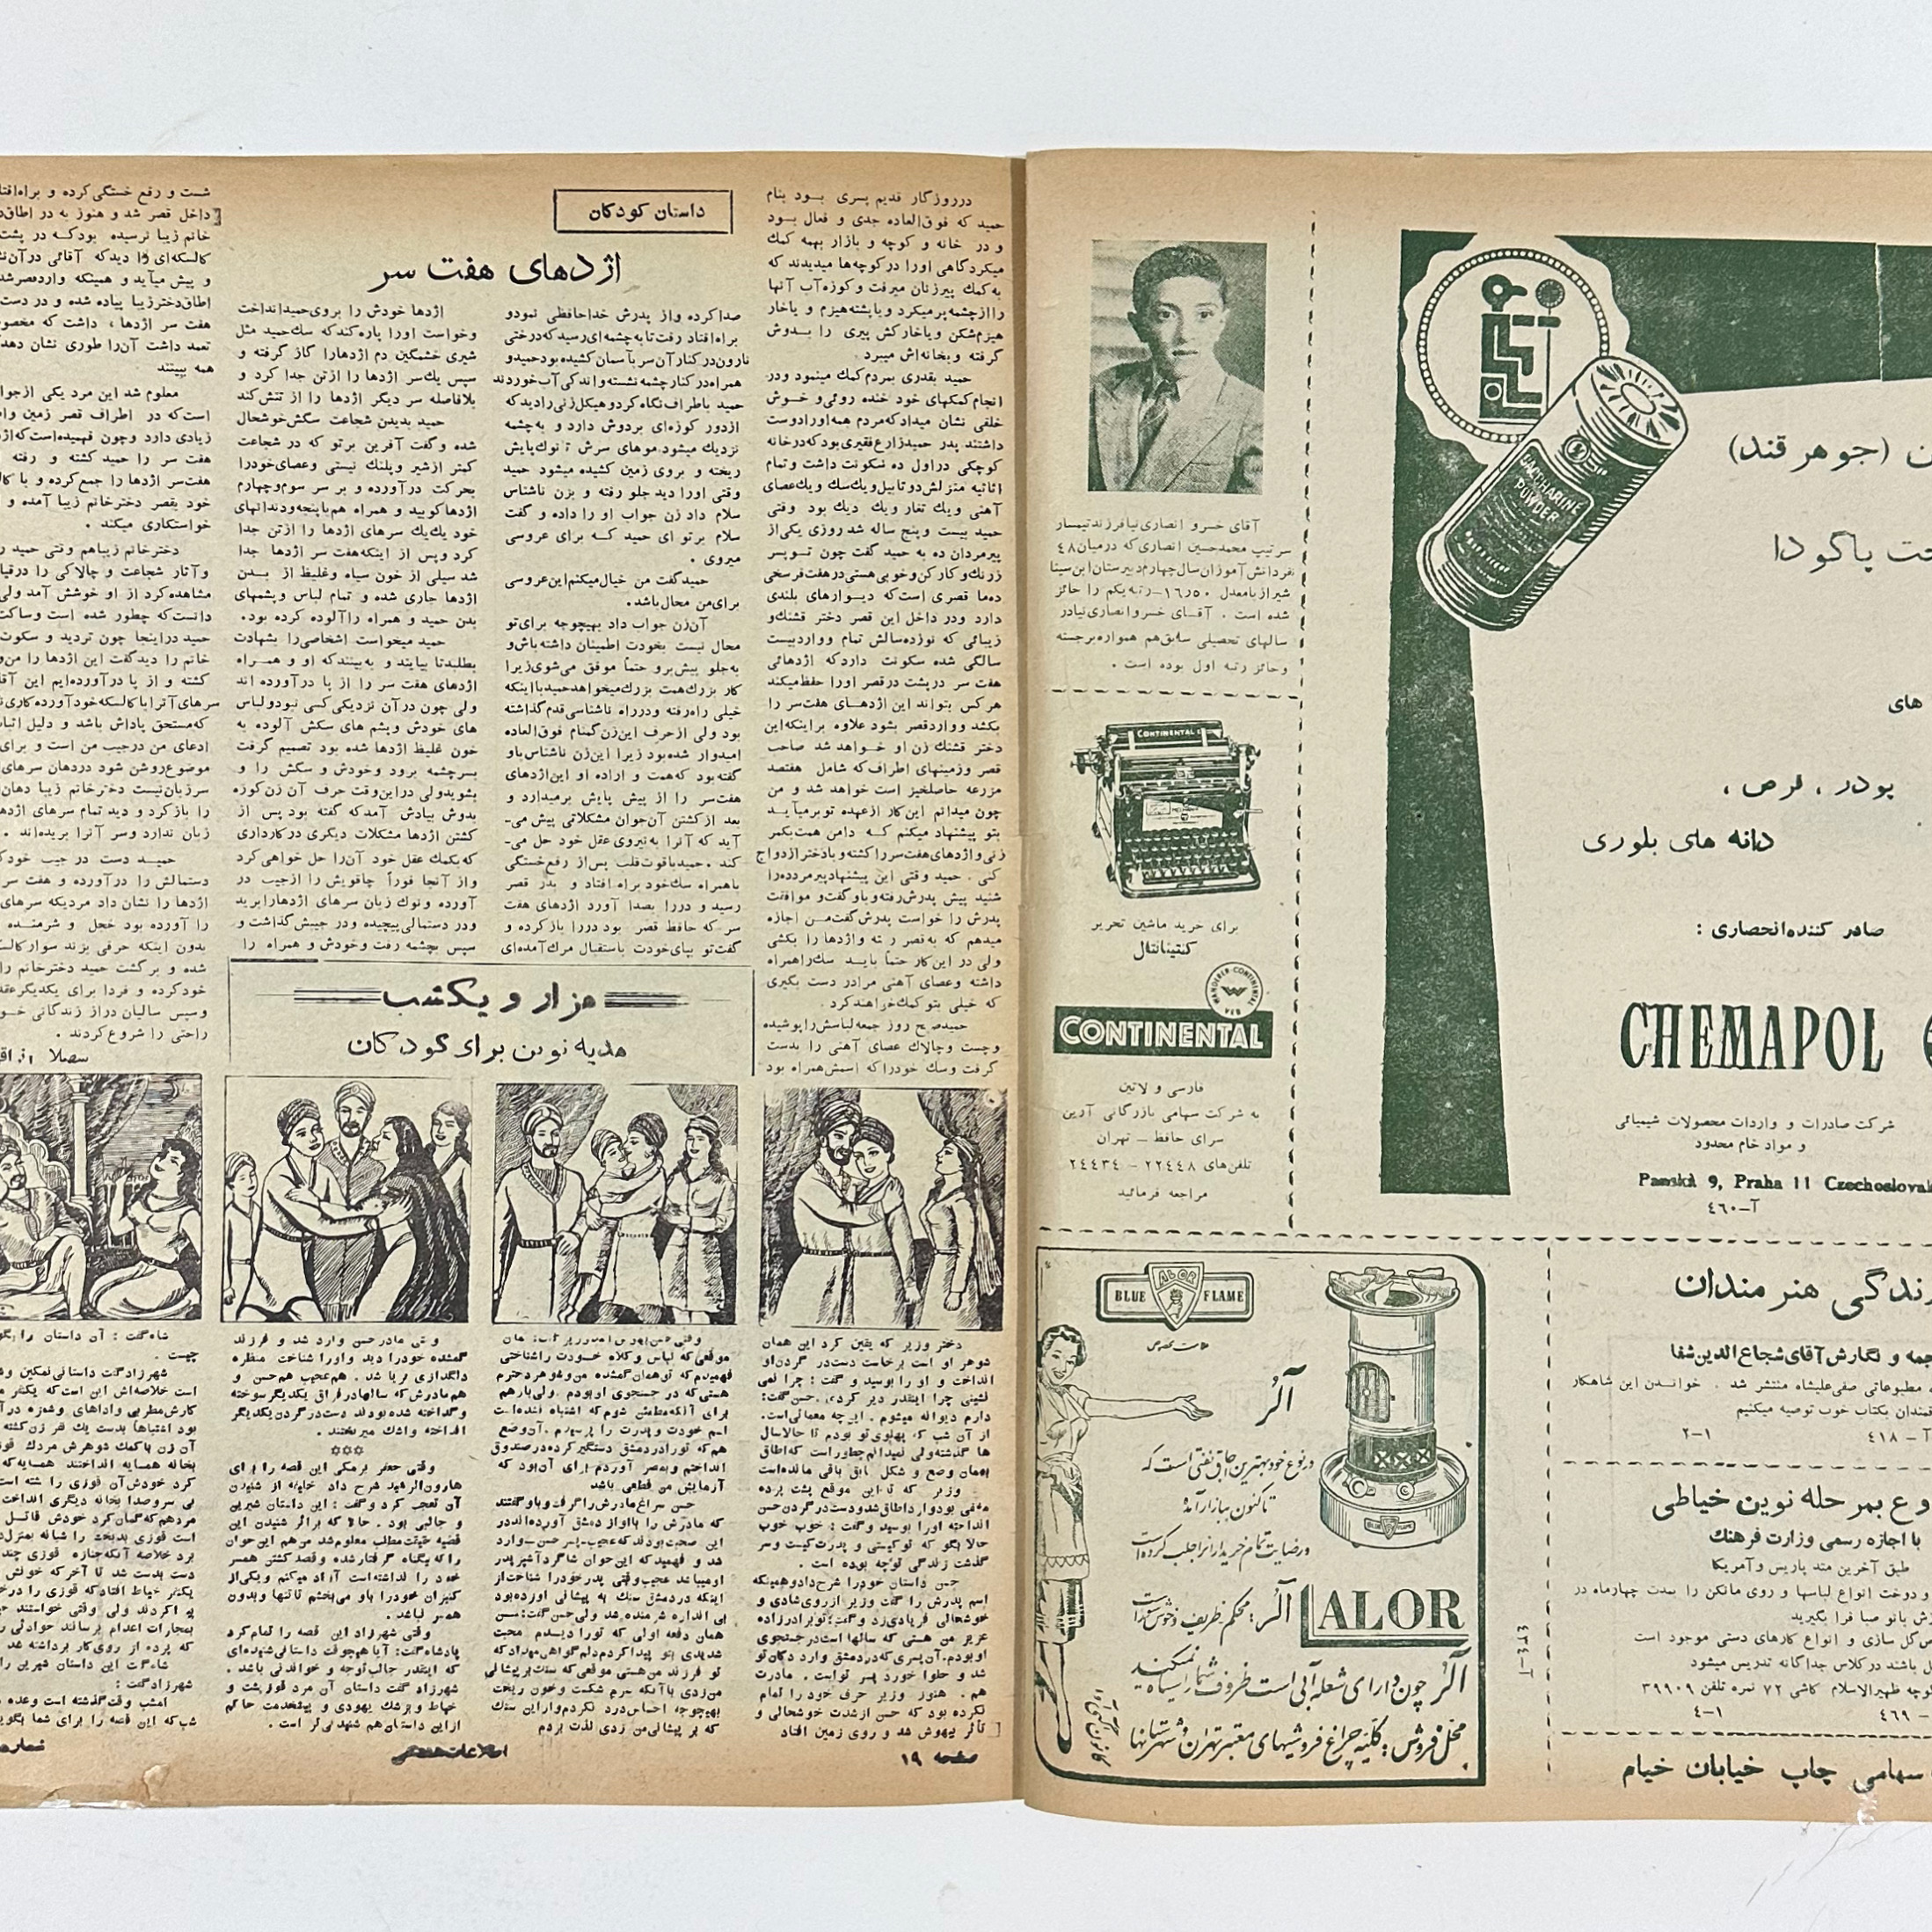 داستان کودکان
اژدهای هفت سر
درروزگار قدیم پسری بود بنام
حمید که فوق‌العاده جدی و فعال بود
و در خانه و کوچه و بازار بهمه کمک
میکرد گاهی اورا درکوچه‌ها میدیدند که
به‌کمک پیرزنان میرفت و کوزه آب آنها
را از چشمه پر میکرد و یا پشته هیزم و یاخار
هیزم‌شکن ویاخارکش پیری را بدوش
گرفته و بخانه‌اش میبرد.
حمید بقدری بمردم کمک مینمود ودر
انجام کمکهای خود خنده روئی و خوش
خلقی نشان میداد که مردم همه اورا دوست
داشتند پدر حمید زارع فقیری بود که درخانه
کوچکی دراول ده سکونت داشت و تمام
اثاثیه منزلش دو تا بیل و یک سک و یک عصای
آهنی و یک تغار و یک دیک بود وقتی
حمید بیست و پنج ساله شد روزی یکی از
پیرمردان ده به حمید گفت چون تو پسر
زرنک و کارکن وخوبی هستی در هفت فرسخی
ده‌ما قصری است که دیوارهای بلندی
دارد ودر داخل این قصر دختر قشنک و
زیبائی که نوزده سالش تمام و وارد بیست
سالگی شده سکونت دارد که اژدهائی
هفت سر درپشت در قصر اورا حفظ میکند
هرکس بتواند این اژدهای هفت‌سر را
بکشد ووارد قصر بشود علاوه براینکه این
دختر قشنک زن او خواهد شد صاحب
قصر وزمینهای اطراف که شامل هفتصد
مزرعه حاصلخیز است خواهد شد و من
چون میدانم این کار از عهده تو برمیآید
بتو پیشنهاد میکنم که دامن همت بکمر
زنی و اژدهای هفت‌سر را کشته و با دختر ازدواج
کنی. حمید وقتی این پیشنهاد پیرمرد را
شنید پیش پدرش رفته وباو گفت و موافقت
پدرش را خواست پدرش گفت من اجازه
میدهم که به قصر رفته و اژدها را بکشی
ولی در این کار حتماً باید سک را همراه
داشته وعصای آهنی مرادر دست بگیری
که خیلی بتو کمک خواهند کرد.
حمید صبح روز جمعه لباسش را پوشیده
وچست وچالاک عصای آهنی را بدست
گرفت وسک خودرا که اسمش همراه بود
صدا کرده و از پدرش خداحافظی نمود و
براه افتاد رفت تا به چشمه‌ای رسید که درختی
نارون در کنار آن سر بآسمان کشیده بود حمید و
همراه در کنار چشمه نشسته و اندکی آب خوردند
حمید باطراف نگاه کرد و هیکل زنی را دید که
ازدور کوزه‌ای بردوش دارد و به چشمه
نزدیک میشود. موهای سرش تا نوک پایش
ریخته و بروی زمین کشیده میشود حمید
وقتی اورا دید جلو رفته و بزن ناشناس
سلام داد زن جواب او را داده و گفت
سلام برتو ای حمید که برای عروسی
میروی.
حمید گفت من خیال میکنم این عروسی
برای من محال باشد.
آن زن جواب داد بهیچوجه برای تو
محال نیست بخودت اطمینان داشته باش و
به جلو پیش برو حتماً موفق می‌شوی زیرا
کار بزرک همت بزرک میخواهد حمید با اینکه
خیلی راه رفته ودرراه ناشناسی قدم گذاشته
بود ولی از حرف این زن گمنام فوق العاده
امیدوار شده بود زیرا این زن ناشناس باو
گفته بود که همت و اراده او این اژدهای
هفت‌سر را از پیش پایش برمیدارد و
بعد از کشتن آن جوان مشکلاتی پیش می‌-
آید که آنرا به نیروی عقل خود حل می-
کند. حمید با قوت قلب پس از رفع خستگی
باهمراه سک خود براه افتاد و بدر قصر
رسید و دررا بصدا آورد اژدهای هفت
سر که حافظ قصر بود دررا باز کرده و
گفت تو بپای خودت باستقبال مرک آمده‌ای
اژدها خودش را بروی حمید انداخت
وخواست اورا پاره کند که سک حمید مثل
شیری خشمگین دم اژدها را گاز گرفته و
سپس یک سر اژدها را از تن جدا کرد و
بلافاصله سر دیگر اژدها را از تنش کند
حمید بدیدن شجاعت سگش خوشحال
شده و گفت آفرین برتو که در شجاعت
کمتر ازشیر و پلنک نیستی وعصای خودرا
بحرکت درآورده و بر سر سوم وچهارم
اژدها کوبید و همراه هم با پنجه ودندانهای
خود یک یک سرهای اژدها را ازتن جدا
کرد و پس از اینکه هفت سر اژدها جدا
شد سیلی از خون سیاه وغلیظ از بدن
اژدها جاری شده و تمام لباس و پشمهای
بدن حمید و همراه را آلوده کرده بود.
حمید میخواست اشخاصی را بشهادت
بطلبد تا بیایند و به بینند که او و همراه
اژدهای هفت سر را از پا درآورده اند
ولی چون در آن نزدیکی کسی نبود و لباس
های خودش و پشم های سکش آلوده به
خون غلیظ اژدها شده بود تصمیم گرفت
بسر چشمه برود و خودش و سکش را و
بشوید ولی در این وقت حرف آن زن کوزه
بدوش بیادش آمد که گفته بود پس از
کشتن اژدها مشکلات دیگری در کار داری
که بکمک عقل خود آن را حل خواهی کرد
و از آنجا فوراً چاقویش را از جیب در
آورده ونوک زبان سرهای اژدها را برید
ودر دستمالی پیچیده ودر جیبش گذاشت و
سپس بچشمه رفت وخودش و همراه را
شست و رفع خستگی کرده و براه افتاد
داخل قصر شد و هنوز به در اطاق
خانم زیبا نرسیده بود که در پشت
کالسکه‌ای را دید که آقائی در آن
و پیش میآید و همینکه وارد قصر شد
اطاق دختر زیبا پیاده شده و در دست
هفت سر اژدها، داشت که مخصو
تعمد داشت آن را طوری نشان دهد
همه ببینند
معلوم شد این مرد یکی از
است که در اطراف قصر زمین
زیادی دارد وچون فهمیده است که
هفت سر را حمید کشته و رفته
هفت سر اژدها را جمع کرده و با
خود بقصر دختر خانم زیبا آمده و
خواستکاری میکند.
دختر خانم زیبا هم وقتی حمید
وآثار شجاعت و چالاکی را
مشاهده کرد از او خوشش آمد ولی
دانست که چطور شده است وساکت
حمید دراینجا چون تردید و سکوت
خانم را دید گفت این اژدها را من و
کشته و از پا درآورده‌ایم این
سرهای آنرا با کالسکه خود آورده کاری
که مستحق پاداش باشد و دلیل
ادعای من درجیب من است و برای
موضوع روشن شود دردهان سرهای
سر زبان نیست دختر خانم زیبا دهان
را باز کرد و دید تمام سرهای
زبان ندارد وسر آنرا بریده‌اند.
حمید دست در جیب خود
دستمالش را درآورده و هفت سر
اژدها را نشان داد مردیکه سرهای
را آورده بود خجل و شرمنده
بدون اینکه حرفی بزند سوار
شده و برگشت حمید دختر خانم را
خود کرده و فردا برای یکدیگر
وسپس سالیان دراز زندگانی
راحتی را شروع کردند.
هزار و یکشب
هدیه نوین برای کودکان
دختر وزیر که یقین کرد این همان
شوهر او است برخاست دست در گردن او
انداخت و او را بوسید و گفت: چرا نمی
نشینی چرا اینقدر دیر کردی. حسن گفت:
دارم دیوانه میشوم. این چه معمائی است.
از آن شب که پهلوی تو بودم تا حالا سال
ها گذشته ولی نمیدانم چطور است که اطاق
بهمان وضع و شکل سابق باقی مانده است
وزیر که تا این موقع پشت پرده
مخفی بود وارد اطاق شد و دست در گردن حسن
انداخته اورا بوسید و گفت: خوب خوب
حالا بگو که تو کیستی و پدرت کیست و سر
گذشت زندگی تو چه بوده است.
حسن داستان خودرا شرح داد و همینکه
اسم پدرش را گفت وزیر از روی شادی و
خوشحالی فریادی زد و گفت: تو برادرزاده
عزیز من هستی که سالها است در جستجوی
او بودم. آن پسری که در دمشق وارد دکان تو
شد و حلوا خورد پسر تو است. مادرت
هم. هنوز وزیر حرف خود را تمام
نکرده بود که حسن ازشدت خوشحالی و
تأثر بیهوش شد و روی زمین افتاد
موقعی که لباس وکلاه خودت را شناختی
فهمیدم که تو همان گمشده من و شوهر دخترم
هستی که در جستجوی او بودم. ولی باز هم
برای آنکه مطمئن شوم که اشتباه نشده است
اسم خودت وپدرت را پرسیدم. آن وضع
هم که تورا در دمشق دستگیر کرده در صندوق
انداختم و بمصر آوردم برای آن بود که
آزمایش من قطعی باشد
حسن سراغ مادرش را گرفت و باو گفتند
که مادرش را با او از دمشق آورده‌اند در
این صحبت بودند که عجیب پسر حسن وارد
شد و فهمید که این جوان شاگرد آشپز پدر
او میباشد عجیب وقتی پدر خود را شناخت از
اینکه در دمشق سنک به پیشانی او زده بود
بی اندازه شرمنده شد ولی حسن گفت: من
همان دفعه اولی که تورا دیدم محبت
شدیدی بتو پیدا کردم دلم گواهی میداد که
تو فرزند من هستی موقعی که سنک بر پیشانی
من زدی با آنکه سرم شکست و خون ریخت
بهیچوجه احساس درد نکردم و از این سنک
که بر پیشانی من زدی لذت بردم
وقتی مادر حسن وارد شد و فرزند
گمشده خودرا دید و اورا شناخت منظره
دلگدازی برپا شد. هم عجیب هم حسن و
هم مادرش که سالها در فراق یکدیگر سوخته
و گداخته شده بودند دست در گردن یکدیگر
انداخته و اشک میریختند.
وقتی جعفر برمکی این قصه را برای
هارون الرشید شرح داد خلیفه از شنیدن
آن تعجب کرد و گفت: این داستان شیرین
و جالبی بود. حالا که براثر شنیدن این
قضیه حقیقت مطلب معلوم شد من هم این جوان
را که بیگناه گرفتار شده و قصد کشتن همسر
خود را نداشته است آزاد میکنم و یکی از
کنیزان خود را باو می‌بخشم تا تنها و بدون
همسر نباشد.
وقتی شهرزاد این قصه را تمام کرد
پادشاه گفت: آیا هیچوقت داستانی شنیده‌ای
که اینقدر جالب توجه و خواندنی باشد.
شهرزاد گفت داستان آن مرد قوزپشت و
خیاط و پزشک یهودی و پیشخدمت حاکم
ازاین داستان هم شنیدنی‌تر است.
شاه گفت: آن داستان را بگو
چیست.
شهرزاد گفت داستانی نمکین و
است خلاصه‌اش این است که یکنفر
امشب وقت گذشته است وعده
شب که این قصه را برای شما بگویم
صفحه ۱۹
اطلاعات هفتگی
آقای خسرو انصاری‌نیا فرزند تیمسار
سرتیپ محمدحسین انصاری که درمیان ۴۸
نفر دانش آموزان سال چهارم دبیرستان ابن سینا
شیراز با معدل ۱۶٫۵۰ - رتبه یکم را حائز
شده است. آقای خسرو انصاری نیا در
سالهای تحصیلی سابق هم همواره برجسته
وحائز رتبه اول بوده است.
CONTINENTAL
برای خرید ماشین تحریر
کنتیناتال
WANDERER CONTINENTAL
CONTINENTAL
فارسی و لاتین
به شرکت سهامی بازرگانی آرین
سرای حافظ — تهران
تلفن‌های ۲۲۴۴۸ - ۲۴۴۳۴
مراجعه فرمائید
SACCHARINE
POWDER
(جوهر قند)
پاگودا
های
پودر، قرص،
دانه های بلوری
صادر کننده انحصاری:
CHEMAPOL
شرکت صادرات و واردات محصولات شیمیائی
و مواد خام محدود
Panská 9, Praha 11 Czechoslovak
آ-۴۶۰
ALOR
BLUE FLAME
علامت مخصوص
آلُر
در نوع خود بهترین چراغ نفتی است که
تاکنون ببازار آمده
و رضایت تمام خریداران را جلب کرده است
ALOR
آلُر: محکم ظریف و خوش ساخت است
آلُر چون دارای شعله آبی است ظروف شما را سیاه نمیکند
محل فروش: کلیه چراغ فروشیهای معتبر تهران و شهرستانها
آ-۴۳۴۴
زندگی هنرمندان
ترجمه و نگارش آقای شجاع الدین شفا
مطبوعاتی صفی علیشاه منتشر شد. خواندن این شاهکار
بکتاب خوب توصیه میکنیم
آ - ۴۱۸
۲-۱
بمرحله نوین خیاطی
با اجازه رسمی وزارت فرهنک
طبق آخرین متد پاریس و آمریکا
و دوخت انواع لباسها و روی مانکن را بمدت چهارماه در
بانو صبا فرا بگیرید
گل سازی و انواع کارهای دستی موجود است
باشند در کلاس جداگانه تدریس میشود
کوچه ظهیرالاسلام کاشی ۷۲ نمره تلفن ۳۹۹۰۹
- ۴۶۹
۴-۱
سهامی چاپ خیابان خیام